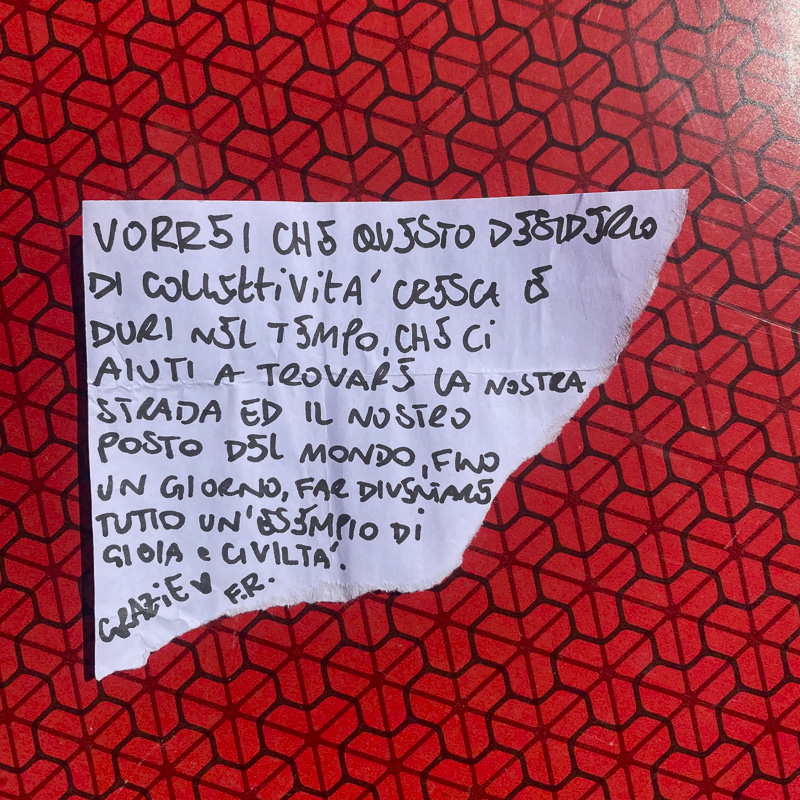 VORREI CHE QUESTO DESIDERIO
DI COLLETTIVITA' CRESCA E
DURI NEL TEMPO, CHE CI
AIUTI A TROVARE LA NOSTRA
STRADA ED IL NOSTRO
POSTO DEL MONDO, FINO
UN GIORNO, FAR DIVENTARE
TUTTO UN' ESEMPIO DI
GIOIA e CIVILTA'.
GRAZiE ♥ F.R.